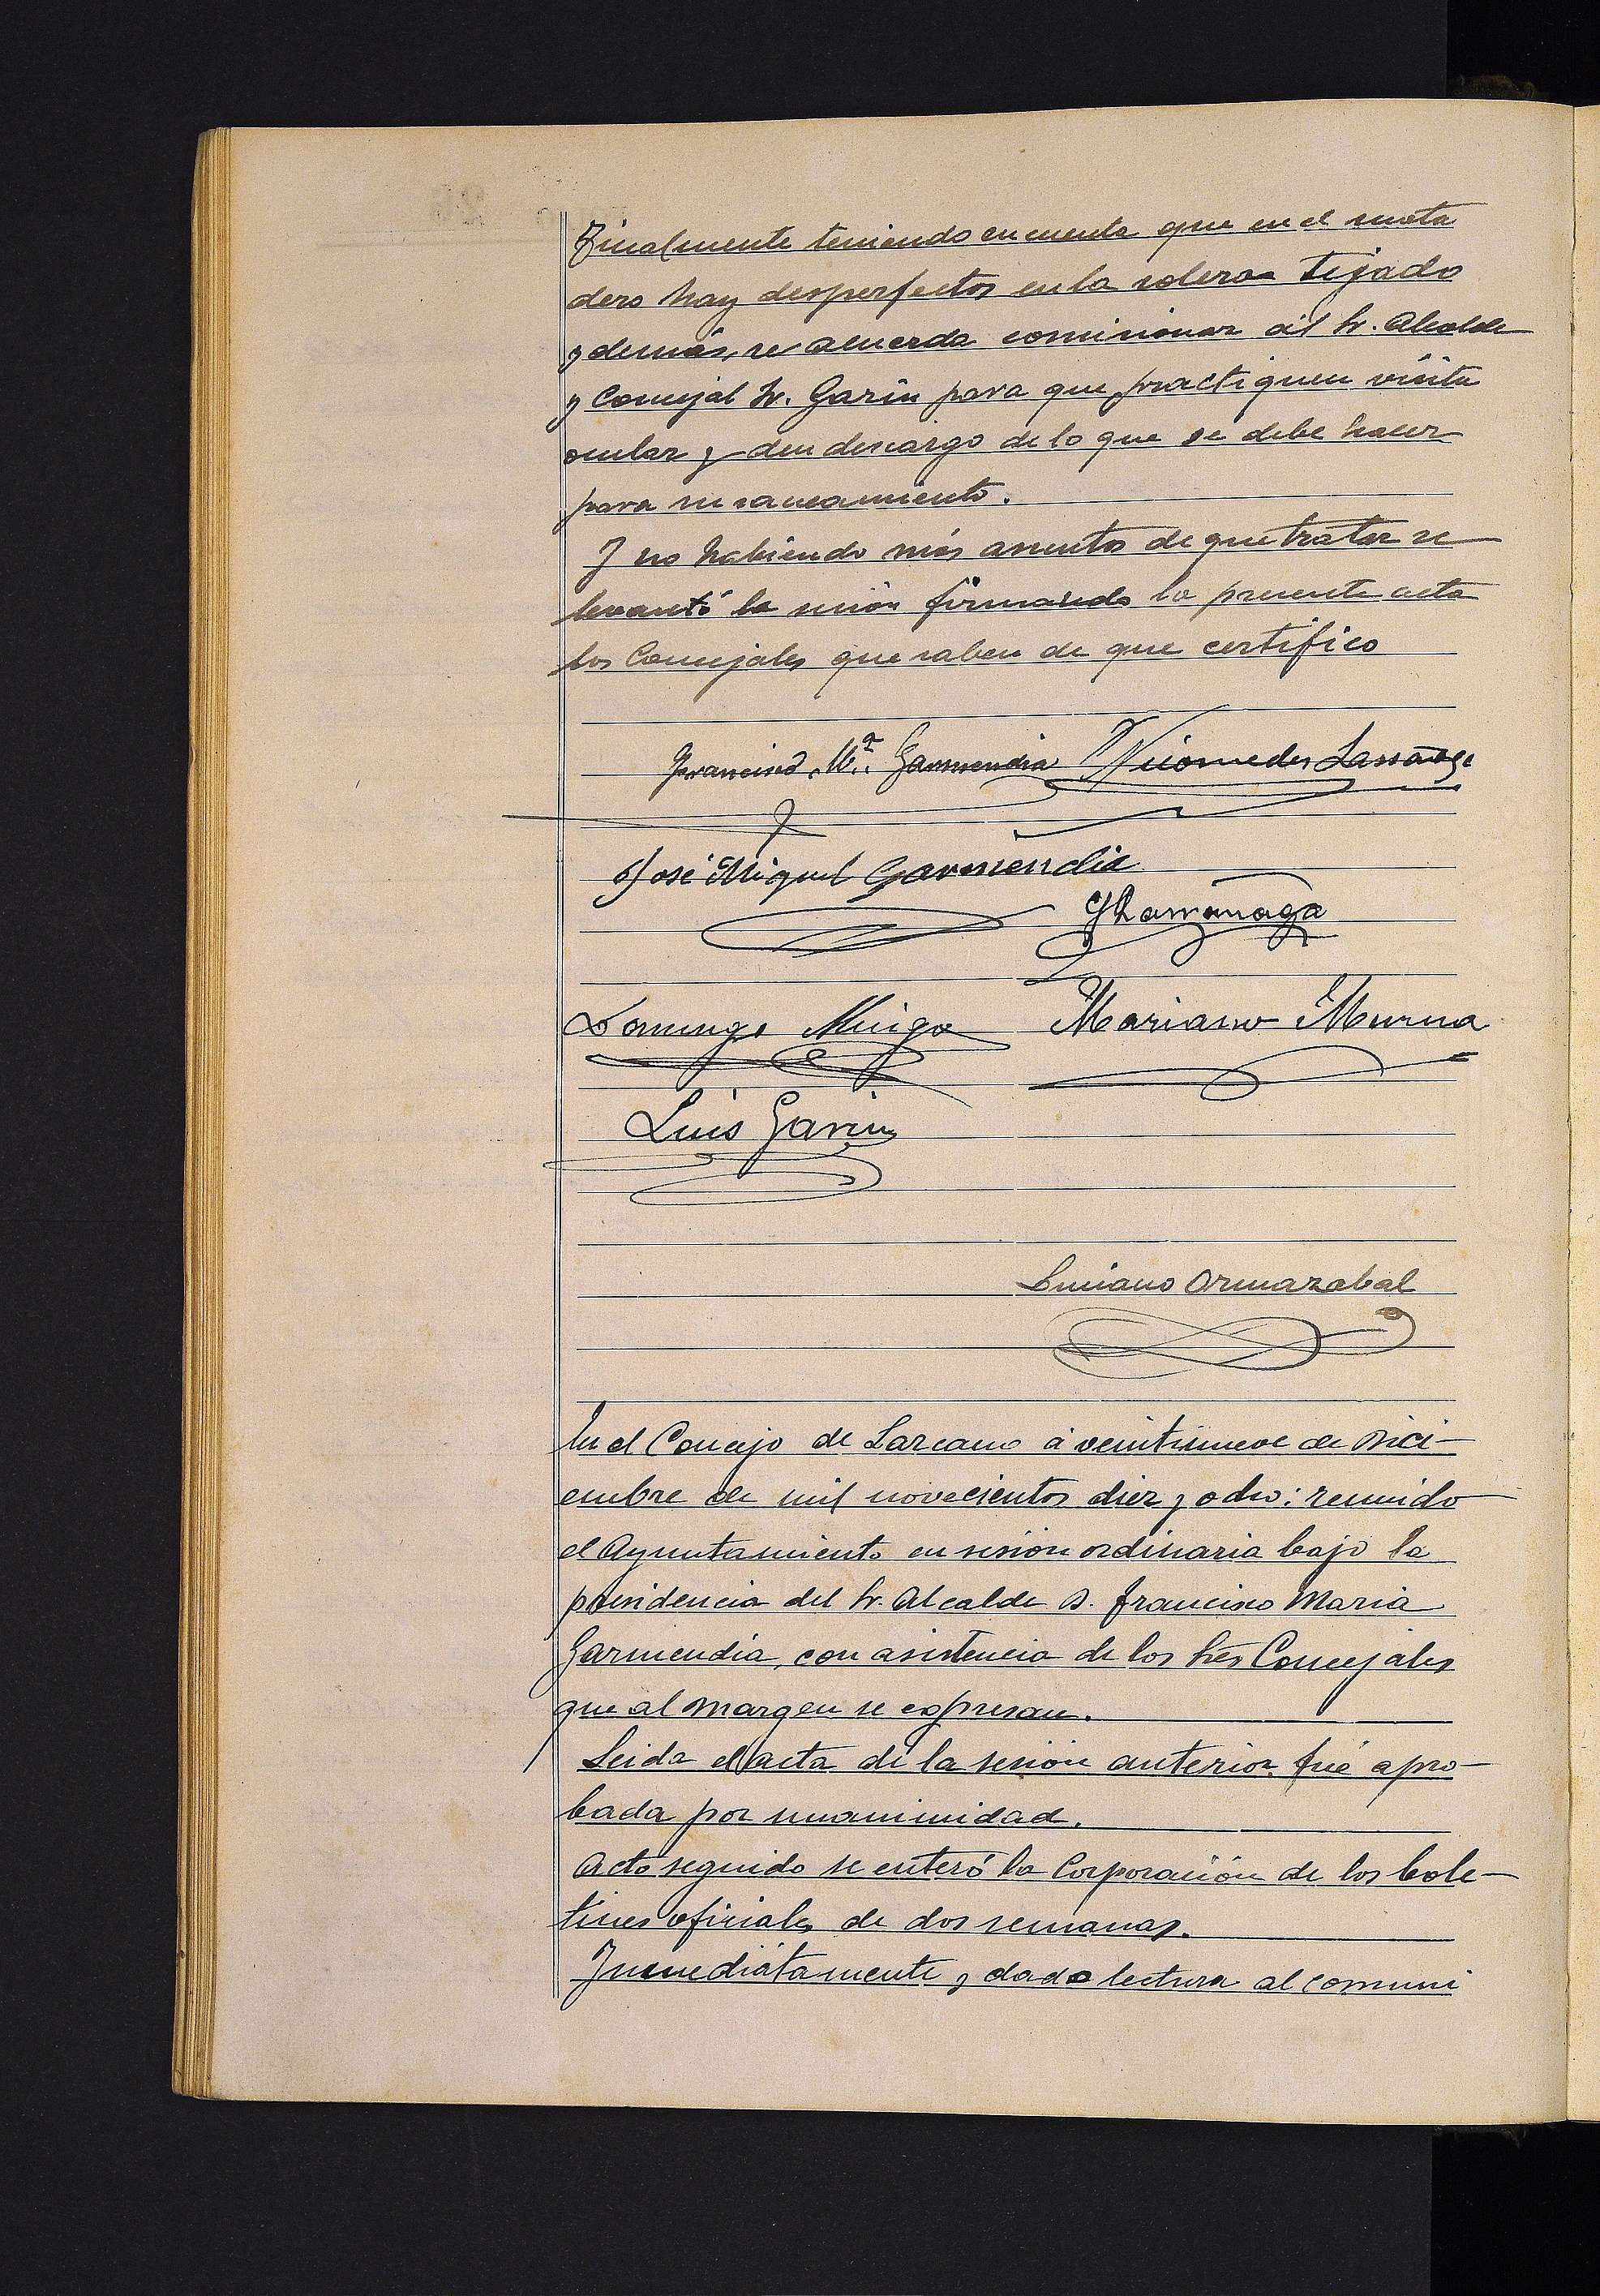 Finalmente teniendo en cuenta que en el mata
dero hay desperfectos en la solera Tejado
y demás, se acuerda comisionar al Sr. Alcalde
y Concejal Sr. Garin para que practiquen visita
ocular y den descargo de lo que se debe hacer
para su saneamiento.
Y no habiendo más asuntos de que tratar se
levantó la sesión firmando la presente acta
los Concejales que saben de que certifico
Francisco Mª. Garmendia Nicomedes
José Miguel Garmendia
Domingo Mariano
Luis Garin
Luciano Ormazabal
En el Concejo de Lazcano á veintinueve de Dici-
embre de mil novecientos diez y ocho: reunido
el Ayuntamiento en sesión ordinaria bajo la
presidencia del Sr. Alcalde D. Francisco Maria
Garmendia, con asistencia de los Sres Concejales
que al margen se expresan.
Leida el acta de la sesión anterior fué apro-
bada por unanimidad.
Acto seguido se enteró la Corporación de los bole-
tines oficiales de dos semanas.
Inmediatamente y dado lectura al comuni